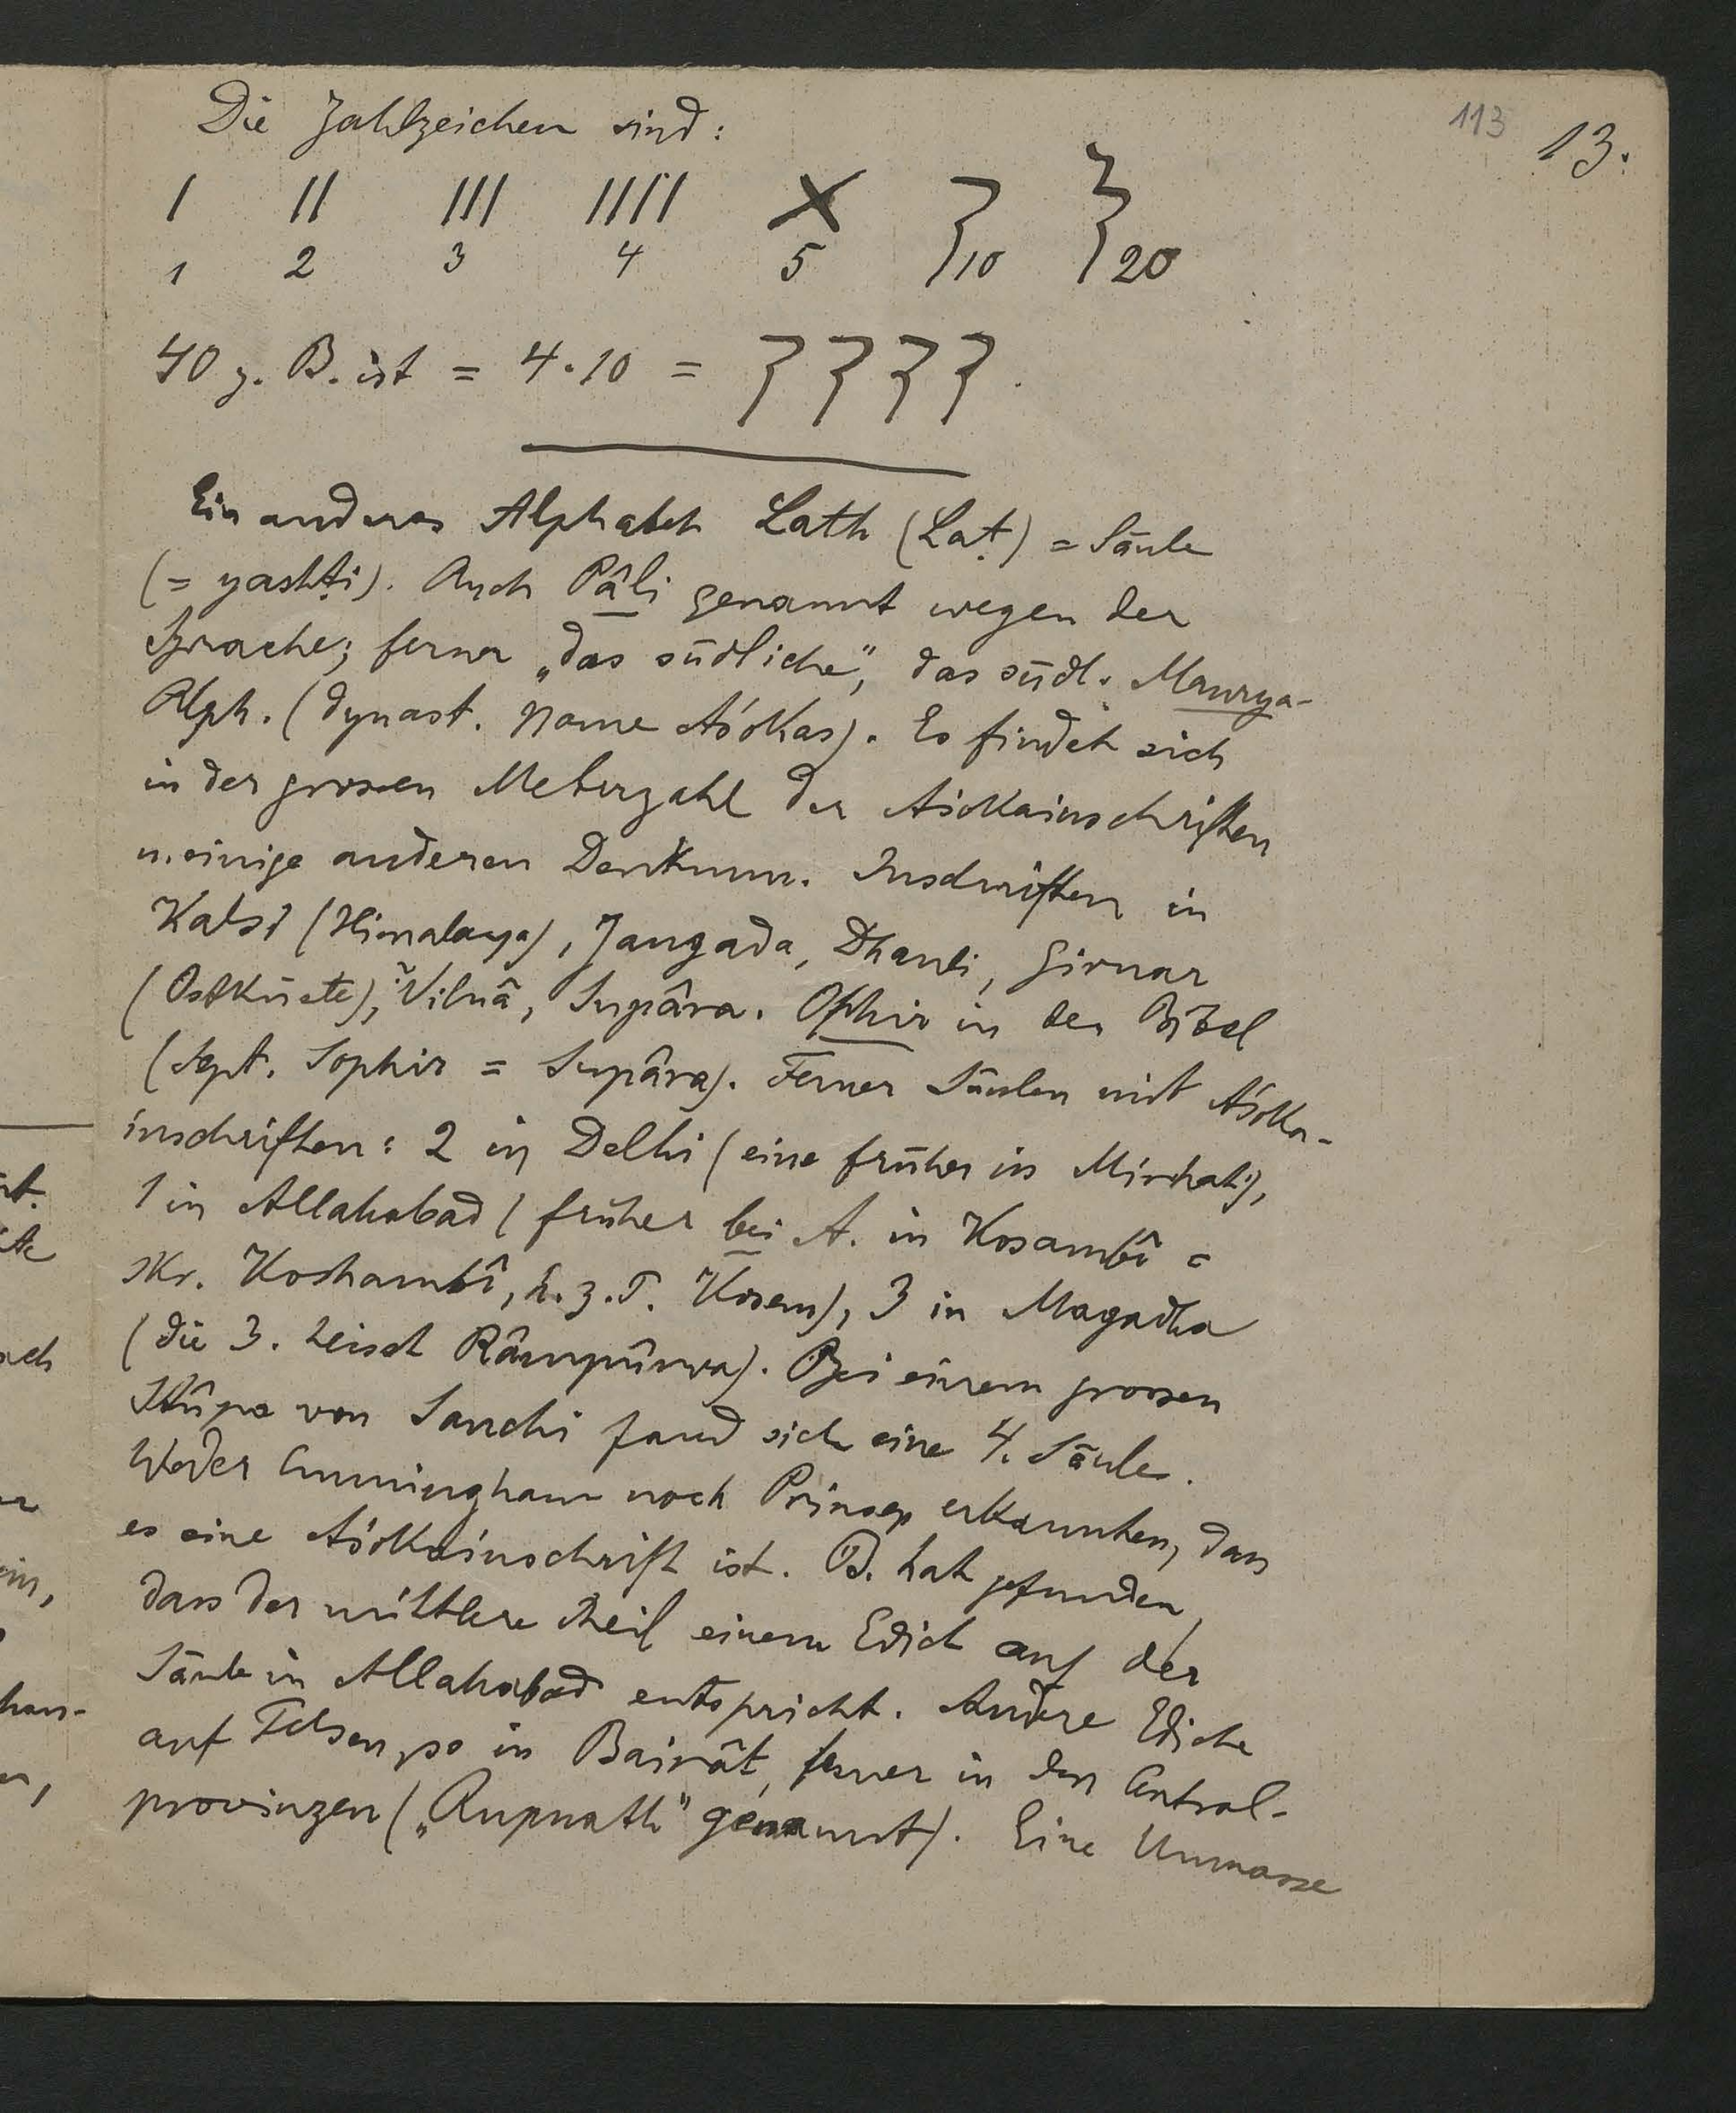 113 13.
Die Zahlzeichen sind:
I II III IIII X
1 2 3 4 5 10 20
40 z. B. ist = 4.10 =
Ein anderes Alphabet Lath (Laṭ) = Säule
(= yashṭi). Auch Pâli genannt wegen der
Sprache; ferner „das südliche", das südl. Maurya-
Alph. (dynast. Name Aśokas). Es findet sich
in der grossen Mehrzahl der Aśokainschriften
u. einige anderen Denkmm. Inschriften in
Kalsi (Himalaya), Jaugada, Dhauli, Girnar
(Ostküste), Vilnâ, Supâra. Ophir in der Bibel
(Sept. Sophir = Supâra). Ferner Säulen mit Aśoka-
inschriften: 2 in Delhi (eine früher in Mirhat),
1 in Allahabad (früher bei A. in Kosambî =
skr. Koshambî, h. z. T. Kosam), 3 in Magadha
(die 3. heisst Râmpûrwa). Bei einem grossen
Stûpa von Sanchi fand sich eine 4. Säule.
Weder Cunningham noch Prinsep erkannten, dass
es eine Aśokainschrift ist. B. hat gefunden,
dass der mittlere Theil einem Edict auf der
Säule in Allahabad entspricht. Andere Edicte
auf Felsen, so in Bairât, ferner in den Central-
provinzen („Rupnath" genannt). Eine Unmasse